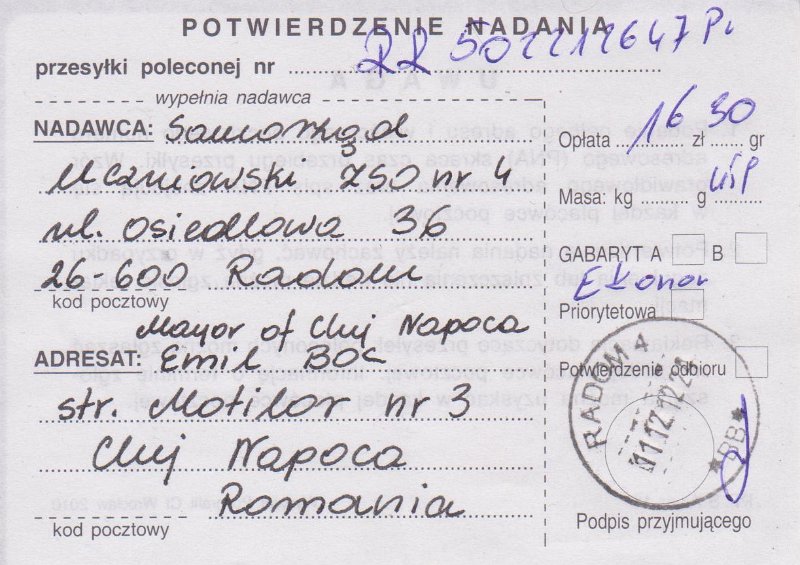 POTWIERDZENIE NADANIA
przesyłki poleconej nr RR 502212647 PL
wypełnia nadawca
NADAWCA: Samorząd
Uczniowski ZSO nr 4
ul. Osiedlowa 36
26-600 Radom
kod pocztowy
Mayor of Cluj Napoca
ADRESAT: Emil BOC
str. Motilor nr 3
Cluj Napoca
Romania
kod pocztowy
Opłata 16 zł 30 gr
Masa: kg g
GABARYT A B
Ekonom
Priorytetowa
Potwierdzenie odbioru
RADOM 4
11.12.12.21
*BB*
Podpis przyjmującego
UWAGA